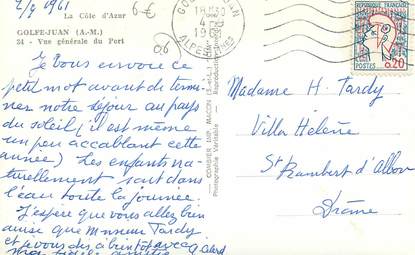 2/9 1961
La Côte d'Azur
6€
GOLFE-JUAN (A.-M.)
24 - Vue générale du Port
06
Je vous envoie ce
petit mot avant de termi
ner notre séjour au pays
du soleil (il est même
un peu accablant cette
année) Les enfants na-
turellement sont dans
l'eau toute la journée.
J'espère que vous allez bien
ainsi que Monsieur Tardy
et je vous dis à bientôt avec
COMBIER IMP. MACON
Photographie Véritable
18H30
4-9
19
ALPES
REPUBLIQUE FRANÇAISE
POSTES
0,20
Madame H. Tardy
Villa Hélène
St Rambert d'Albon
Drôme